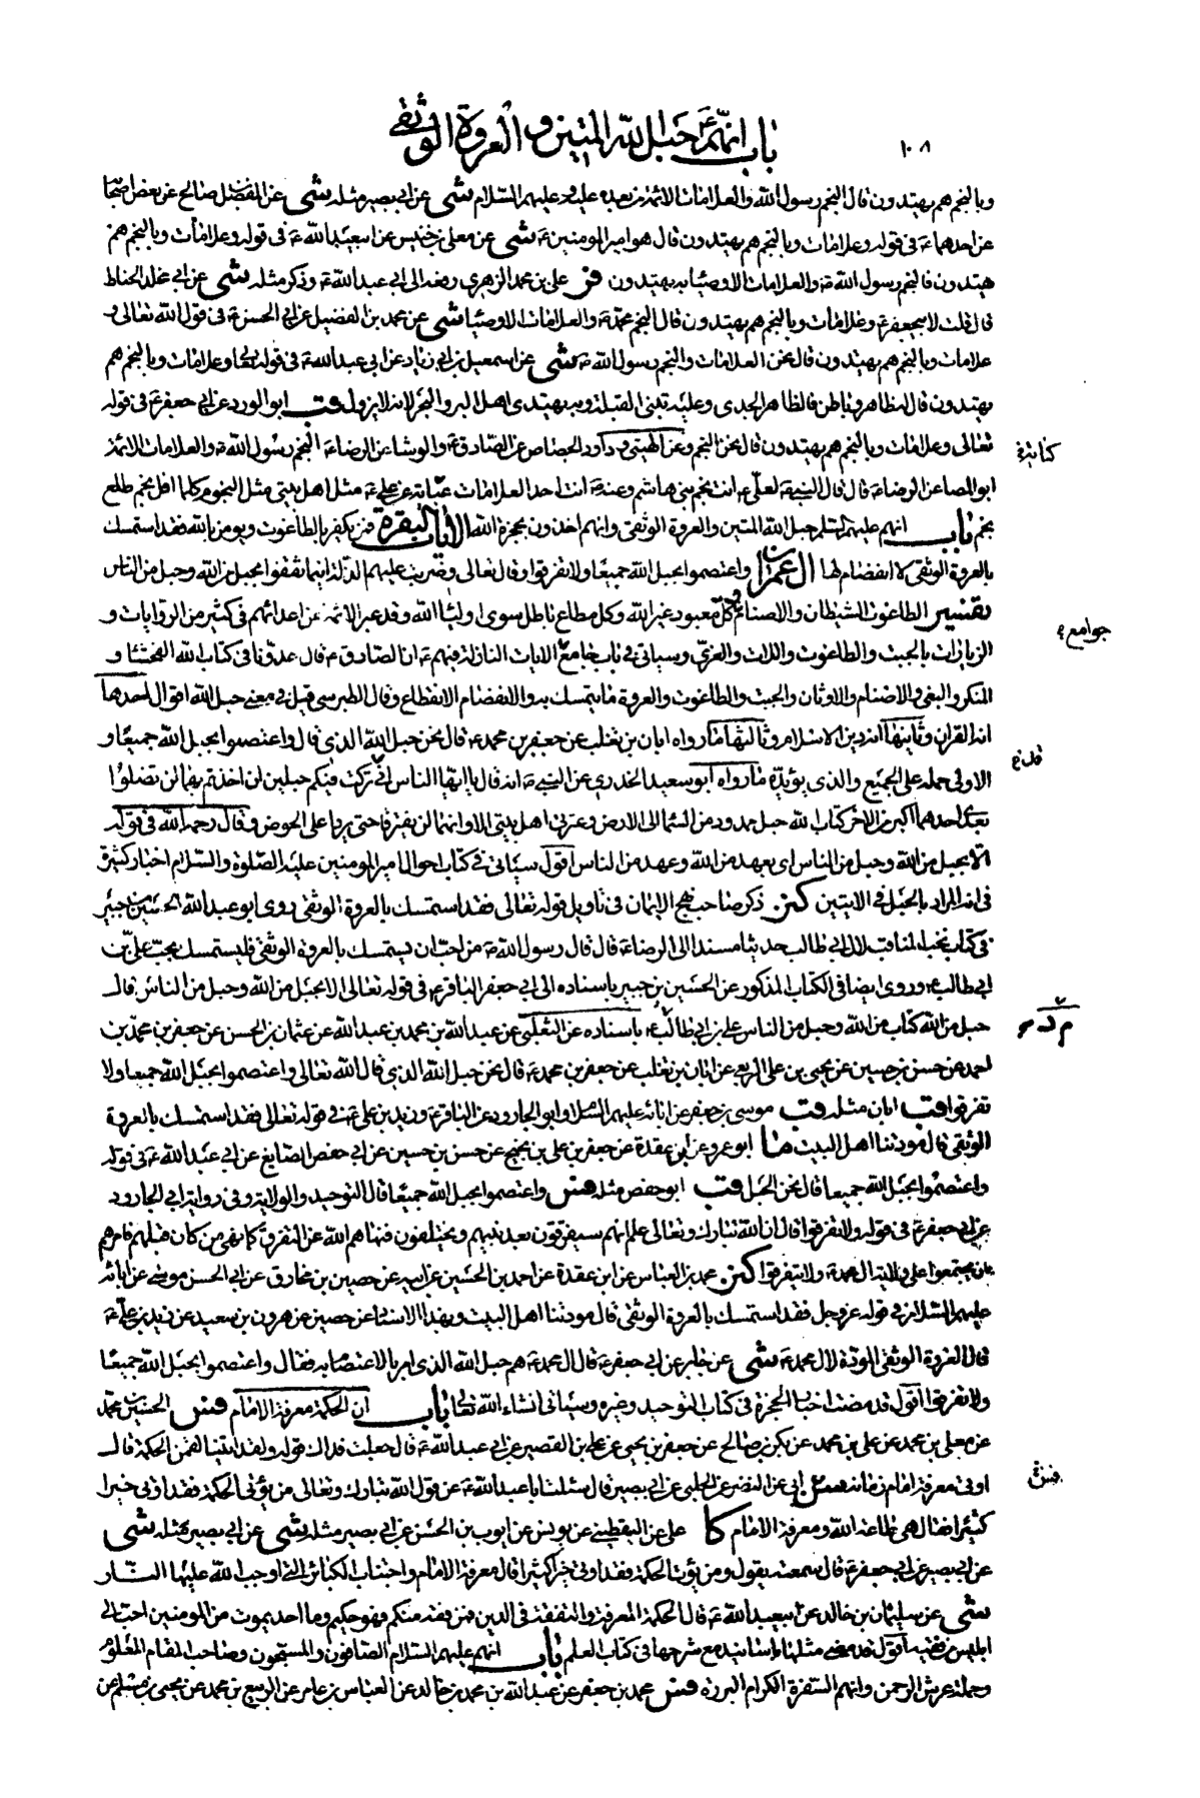 ١٠٨
باب انهم ع حبل الله المتين و العروة الوثقى
وبالنجم هم يهتدون قال النجم رسول الله والعلامات الائمة من بعده عليه وعليهم السلام شى عن ابى بصير مثله شى عن المفضل بن صالح عن بعض اصحابنا
عن احدهما ع فى قوله وعلامات وبالنجم هم يهتدون قال هو امير المومنين ع شى عن معلى بن خنيس عن ابيعبد الله ع فى قوله وعلامات وبالنجم هم
يهتدون فالنجم رسول الله ص والعلامات الاوصياء بهم يهتدون فر على بن محمد الزهرى رفعه الى ابى عبد الله ع وذكر مثله شى عن ابى مخلد الخياط
قال قلت لابيجعفر ع وعلامات وبالنجم هم يهتدون قال النجم محمد ص والعلامات الاوصياء شى عن محمد بن الفضيل عن ابى الحسن ع فى قول الله تعالى و
علامات وبالنجم هم يهتدون قال نحن العلامات والنجم رسول الله ص شى عن اسمعيل بن ابى زياد عن ابى عبد الله ع فى قوله تعالى وعلامات وبالنجم هم
يهتدون قال له ظاهر وباطن فالظاهر الجدى وعليه تبنى القبلة وبه يهتدى اهل البر والبحر لانه لا يزول قب ابو الورد عن ابى جعفر ع فى قوله
تعالى وعلامات وبالنجم هم يهتدون قال نحن النجم وعن الهيتى وداود الجصاص عن الصادق ع والوشاء عن الرضا ع النجم رسول الله ص والعلامات الائمة
ابو المضا عن الرضا ع قال قال النبى ص لعلى ع انت نجم بنى هاشم وعنه ص انت احد العلامات عباية عن على ع مثل اهل بيتى مثل النجوم كلما افل نجم طلع
نجم باب انهم عليهم السلام حبل الله المتين والعروة الوثقى وانهم اخذون بحجزة الله الايات البقرة فمن يكفر بالطاغوت ويومن بالله فقد استمسك
بالعروة الوثقى لا انفصام لها ال عمران واعتصموا بحبل الله جميعا ولا تفرقوا وقال تعالى وضربت عليهم الذلة اينما ثقفوا الا بحبل من الله وحبل من الناس
تفسير الطاغوت الشيطان والاصنام وكل معبود غير الله وكل مطاع باطل سوى اولياء الله وقد عبر الائمة عن اعدائهم فى كثير من الروايات و
الزيارات بالجبت والطاغوت واللات والعزى وسياتى فى باب جامع الايات النازلة فيهم ع ان الصادق ع قال عدونا فى كتاب الله الفحشاء و
المنكر والبغى والاصنام والاوثان والجبت والطاغوت والعروة ما يتمسك به والانفصام الانقطاع وقال الطبرسى قيل فى معنى حبل الله اقوال احدها
انه القران وثانيها انه دين الاسلام وثالثها ما رواه ابان بن تغلب عن جعفر بن محمد ع قال نحن حبل الله الذى قال واعتصموا بحبل الله جميعا و
الاولى حمله على الجميع والذى يؤيده ما رواه ابو سعيد الخدرى عن النبى ص انه قال يا ايها الناس انى تركت فيكم حبلين ان اخذتم بهما لن تضلوا
بعدى احدهما اكبر من الاخر كتاب الله حبل ممدود من السماء الى الارض وعترتى اهل بيتى الا وانهما لن يفترقا حتى يردا على الحوض وقال رحمه الله فى قوله
الا بحبل من الله وحبل من الناس اى بعهد من الله وعهد من الناس اقول سياتى فى كتاب احوال امير المومنين عليه الصلوة والسلام اخبار كثيرة
فى انه المراد بالحبل فى الايتين كنز ذكر صاحب نهج الايمان فى تاويل قوله تعالى فقد استمسك بالعروة الوثقى روى ابو عبد الله الحسين بن جبير
فى كتاب نخب المناقب لال ابى طالب حديثا مسندا الى الرضا ع قال قال رسول الله ص من احب ان يستمسك بالعروة الوثقى فليستمسك بحب على بن
ابى طالب ع وروى ايضا فى الكتاب المذكور عن الحسين بن جبير باسناده الى ابى جعفر الباقر ع فى قوله تعالى الا بحبل من الله وحبل من الناس قال
حبل من الله كتاب من الله وحبل من الناس على بن ابى طالب ع باسناده عن الثعلبى عن عبد الله بن محمد بن عبد الله عن عثمان بن الحسن عن جعفر بن محمد بن
احمد عن حسن بن حسين عن يحيى بن على الربعى عن ابان بن تغلب عن جعفر بن محمد ع قال نحن حبل الله الذى قال الله تعالى واعتصموا بحبل الله جميعا ولا
تفرقوا قب ابان مثله قب موسى بن جعفر عن ابائه عليهم السلام وابو الجارود عن الباقر ع وزيد بن على ع فى قوله تعالى فقد استمسك بالعروة
الوثقى قال مودتنا اهل البيت ما ابو عمرو عن ابن عقدة عن جعفر بن على بن نجيح عن حسن بن حسين عن ابى حفص الصايغ عن ابى عبد الله ع فى قوله
واعتصموا بحبل الله جميعا قال نحن الحبل قب ابو حفص مثله فس واعتصموا بحبل الله جميعا قال التوحيد والولاية وفى رواية ابى الجارود
عن ابى جعفر ع فى قوله ولا تفرقوا قال ان الله تبارك وتعالى علم انهم سيفترقون بعد نبيهم ويختلفون فنهاهم الله عن التفرق كما نهى من كان قبلهم فامرهم
بان يجتمعوا على ولاية ال محمد ص ولا يتفرقوا كنز محمد بن العباس عن ابن عقدة عن احمد بن الحسين عن ابيه عن حصين بن مخارق عن ابى الحسن موسى عن ابائه
عليهم السلام فى قوله عز وجل فقد استمسك بالعروة الوثقى قال مودتنا اهل البيت وبهذا الاسناد عن حصين عن هرون بن سعيد عن زيد بن على ع
قال العروة الوثقى المودة لال محمد ص شى عن جابر عن ابى جعفر ع قال ال محمد ص هم حبل الله الذى امر بالاعتصام به فقال واعتصموا بحبل الله جميعا
ولا تفرقوا اقول قد مضت اخبار الحجزة فى كتاب التوحيد وغيره وسياتى انشاء الله تعالى باب ان الحكمة معرفة الامام فس الحسين بن محمد
عن معلى بن محمد عن على بن محمد عن بكر بن صالح عن جعفر بن يحيى عن على بن القصير عن ابى عبد الله ع قال جعلت فداك قوله ولقد اتينا لقمن الحكمة قال
اوتى معرفة امام زمانه سن ابى عن النضر عن الحلبى عن ابى بصير قال سئلت ابا عبد الله ع عن قول الله تبارك وتعالى من يؤتى الحكمة فقد اوتى خيرا
كثيرا فقال هى طاعة الله ومعرفة الامام كا على عن اليقطينى عن يونس عن ايوب بن الحسن عن ابى بصير مثله شى عن ابى بصير مثله شى
عن ابى بصير عن ابى جعفر ع قال سمعته يقول ومن يؤت الحكمة فقد اوتى خيرا كثيرا قال معرفة الامام واجتناب الكبائر التى اوجب الله عليها النار
شى عن سليمان بن خالد عن ابيعبد الله ع قال الحكمة المعرفة والتفقه فى الدين فمن فقه منكم فهو حكيم وما احد يموت من المومنين احب الى
ابليس من فقيه اقول قد مضى مثلها باسانيد مع شرحها فى كتاب العلم باب انهم عليهم السلام الصافون والمسبحون وصاحب المقام المعلوم
وحملة عرش الرحمن وانهم السفرة الكرام البررة فس محمد بن جعفر عن عبد الله بن محمد بن خالد عن العباس بن عامر عن الربيع بن محمد عن يحيى بن مسلم عن
جوامع